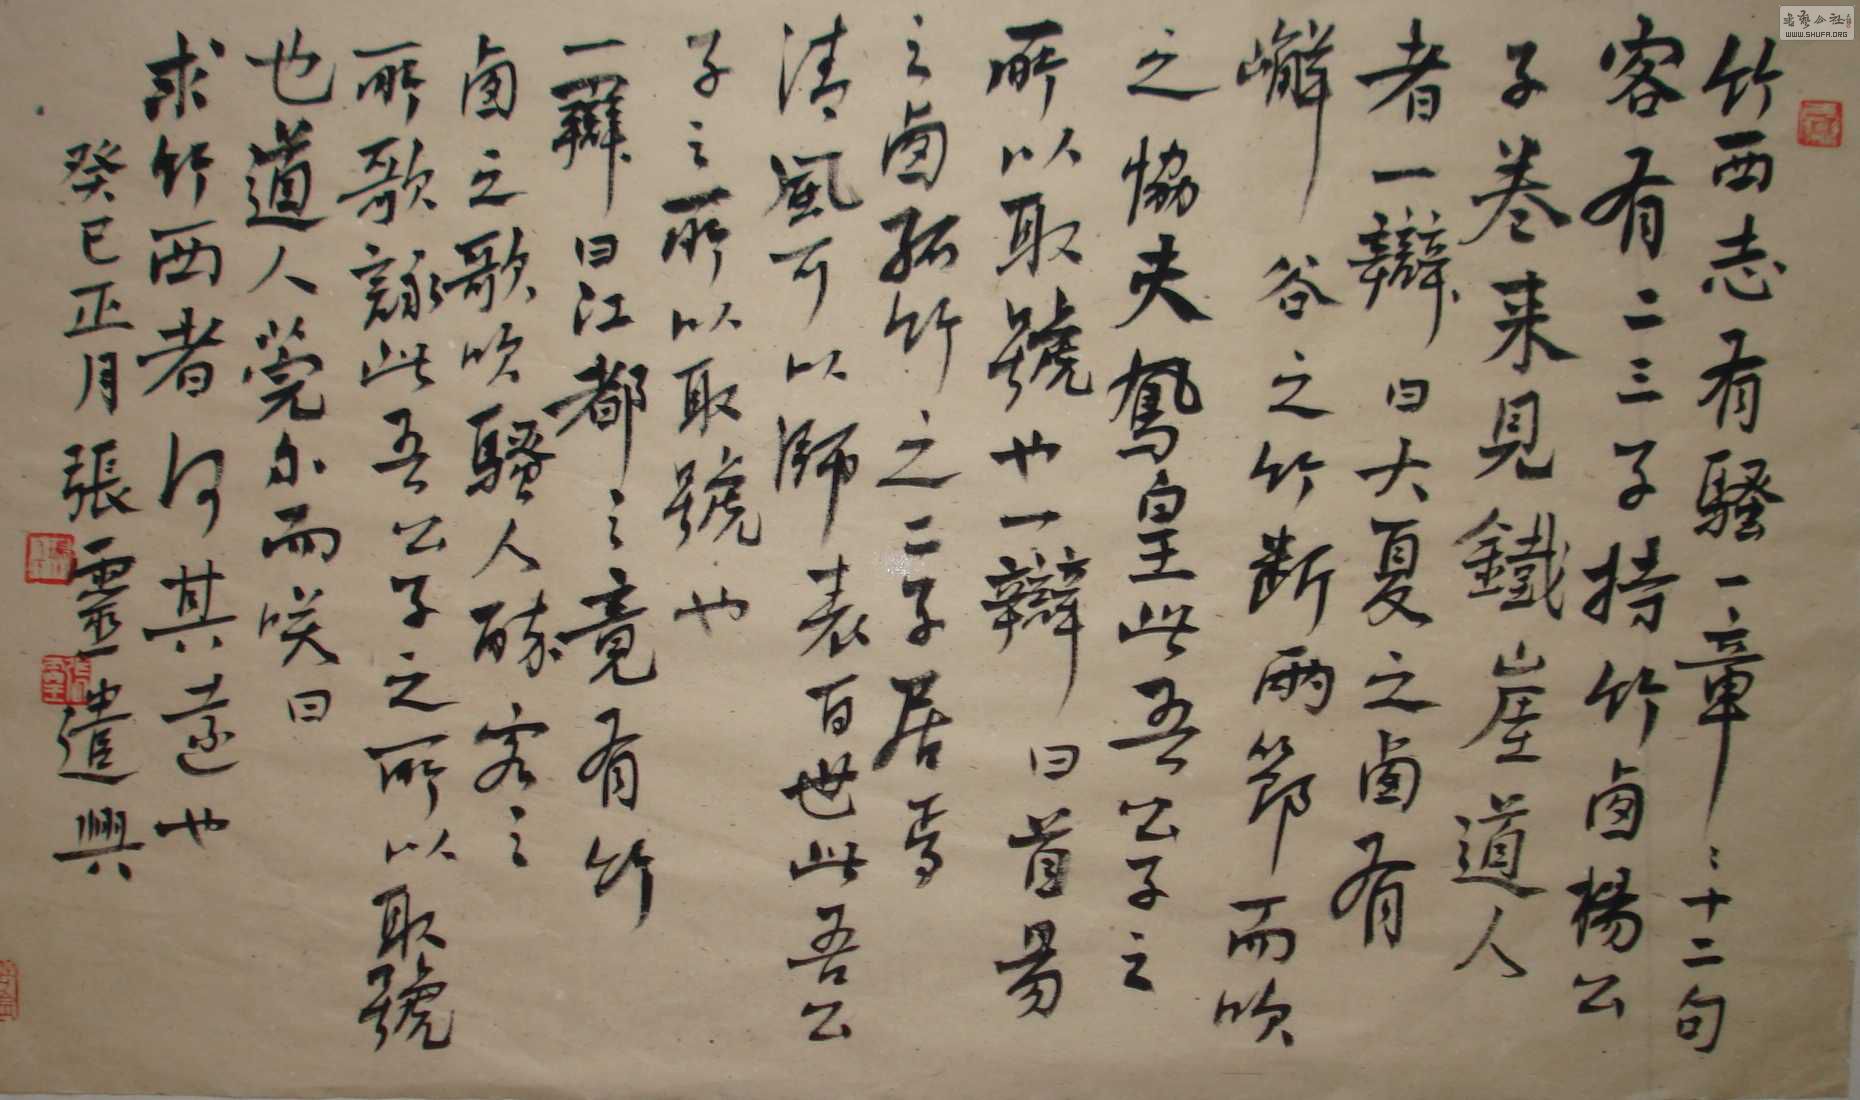 竹西志有騷一章章十二句
客有二三子持竹鹵楊公
子卷来見鐵崖道人
者一辯曰大夏之鹵有
嶰谷之竹断兩節而吹
之協夫鳳皇此吾公子之
所以取號也一辯曰首昜
之鹵孤竹之二子居焉
清風可以師表百世此吾公
子之所以取號也
一辯曰江都之竟有竹
鹵之歌吹騷人酔客之
所歌詠此吾公子之所以取號
也道人莞尔而咲曰
求竹西者何其遠也
癸巳正月張靈遣興
書藝公社
WWW.SHUFA.ORG